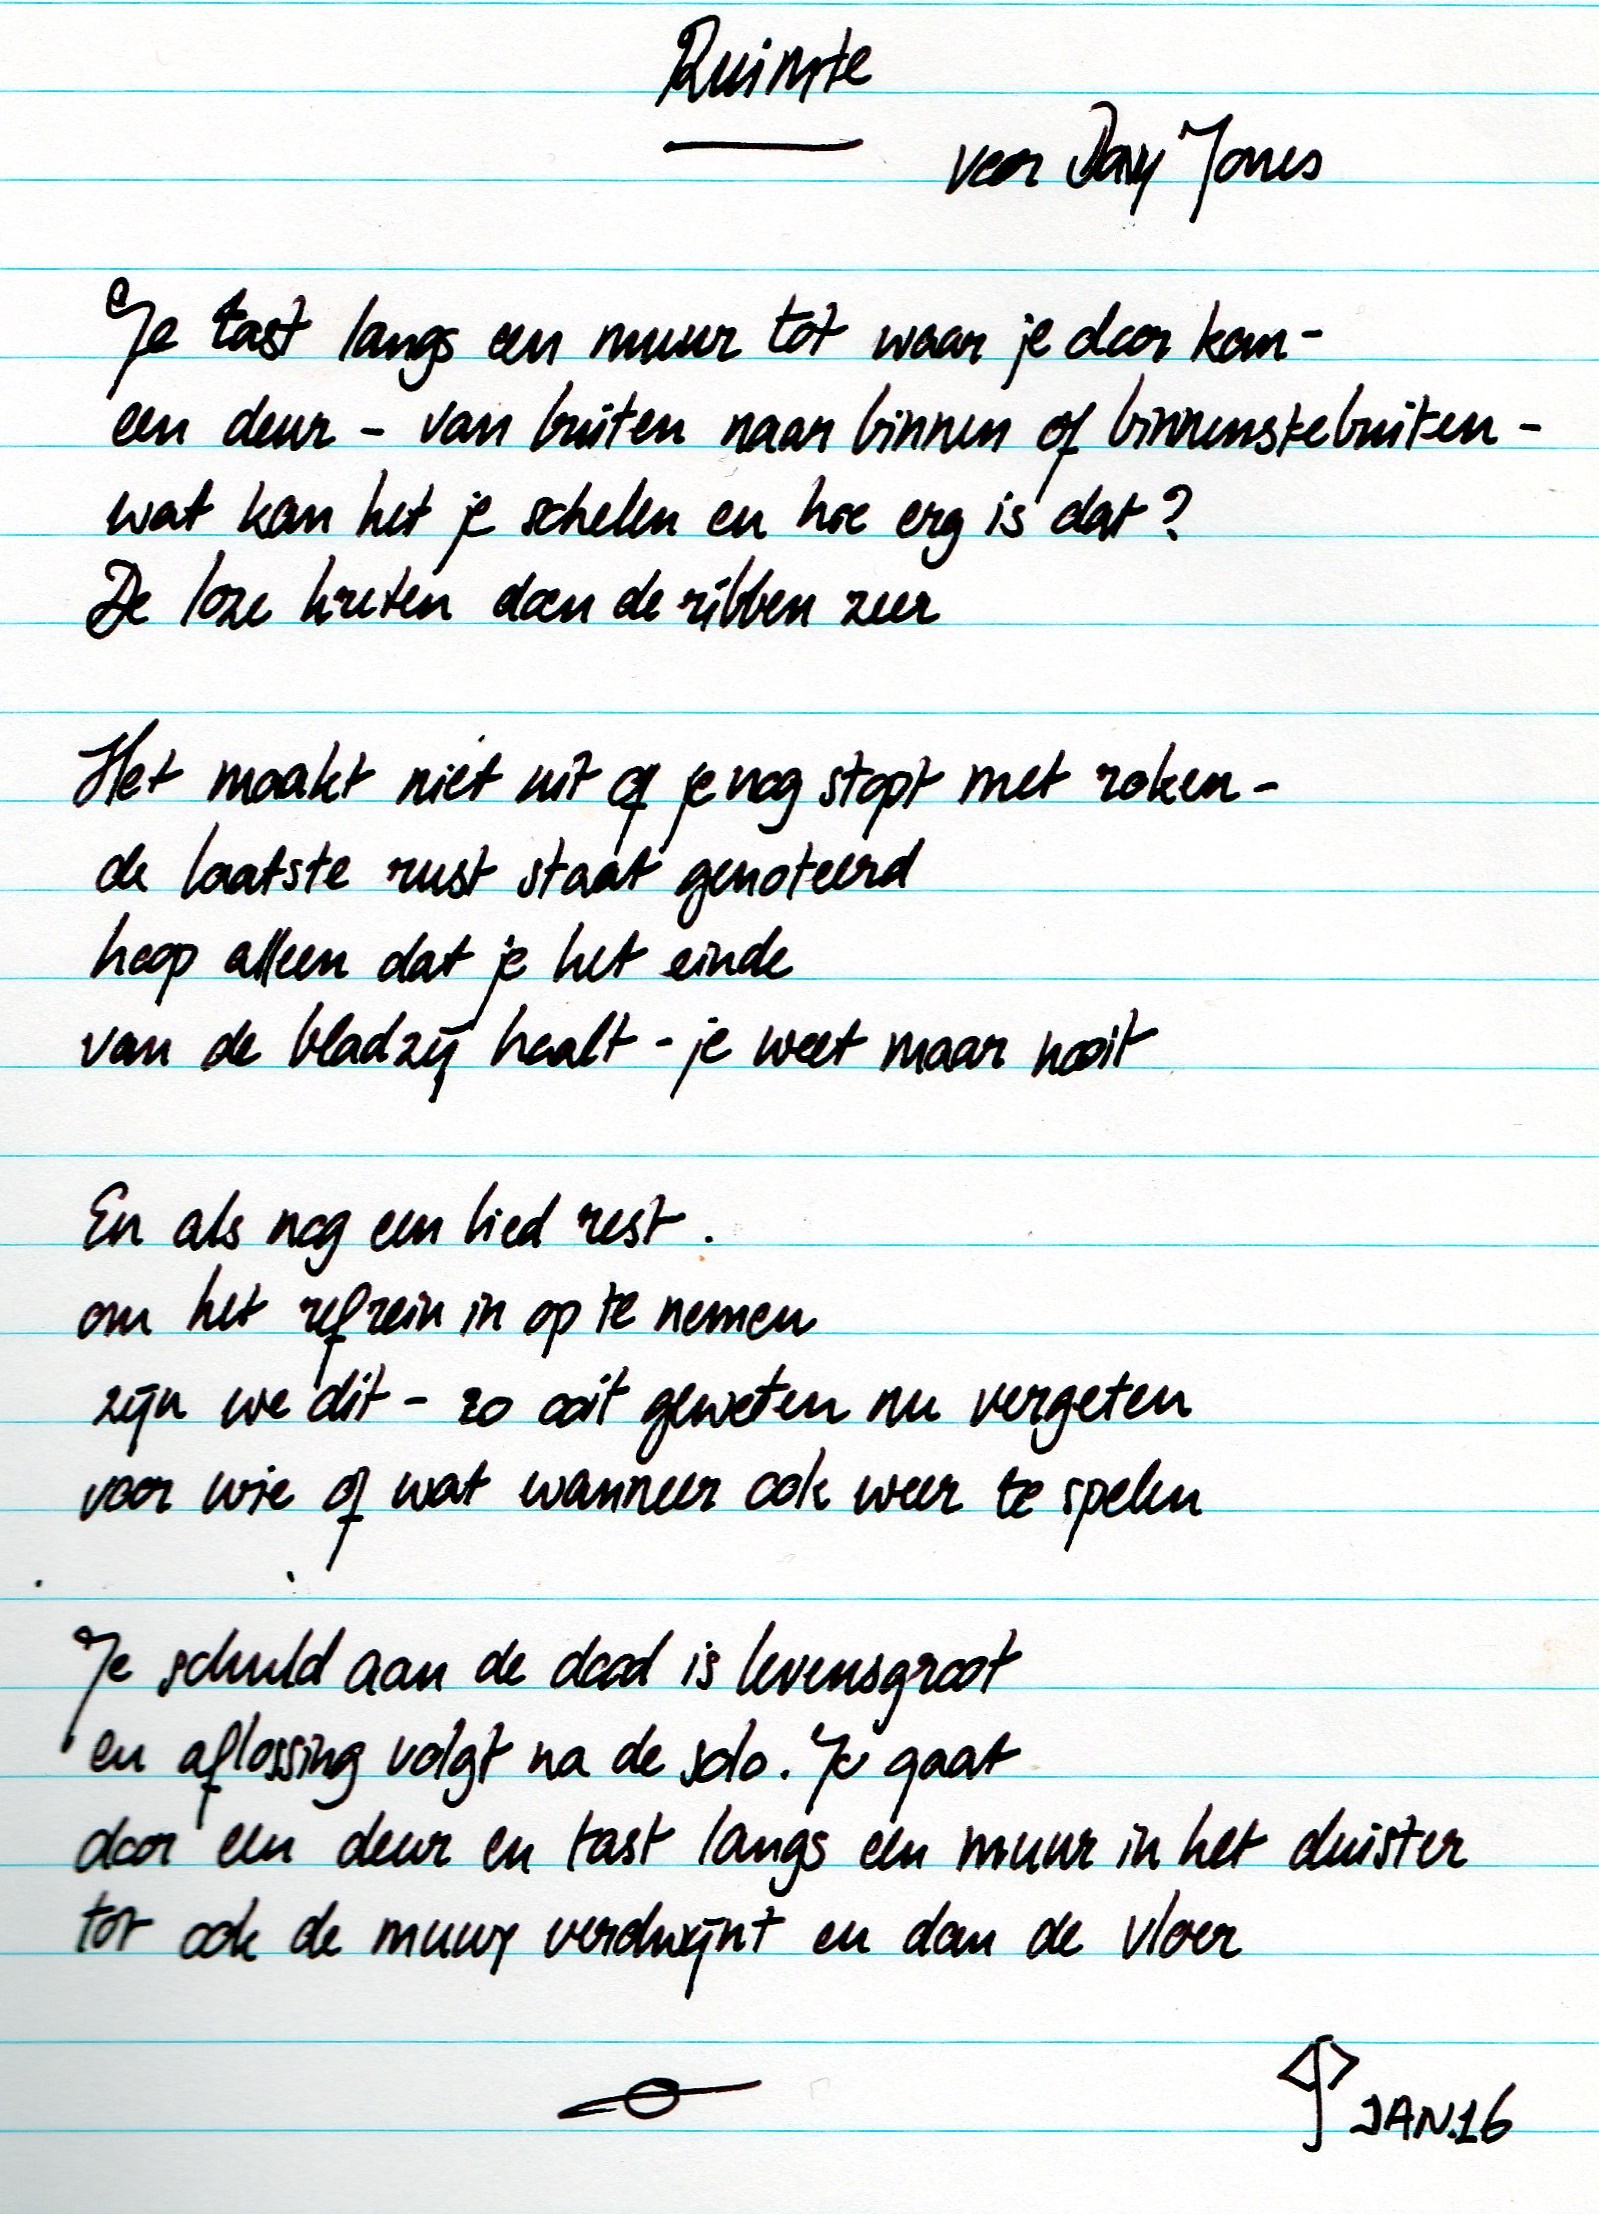 Ruimte
voor Davy Jones
Je tast langs een muur tot waar je door kan-
een deur - van buiten naar binnen of binnenstebuiten -
wat kan het je schelen en hoe erg is dat?
De loze kreten doen de ribben zeer
Het maakt niet uit of je nog stopt met roken -
de laatste rust staat genoteerd
hoop alleen dat je het einde
van de bladzij haalt - je weet maar nooit
En als nog een lied rest.
om het refrein in op te nemen
zijn we dit - zo ooit geweten nu vergeten
voor wie of wat wanneer ook weer te spelen
Je schuld aan de dood is levensgroot
en aflossing volgt na de solo. Je gaat
door een deur en tast langs een muur in het duister
tot ook de muur verdwijnt en dan de vloer
JAN.16